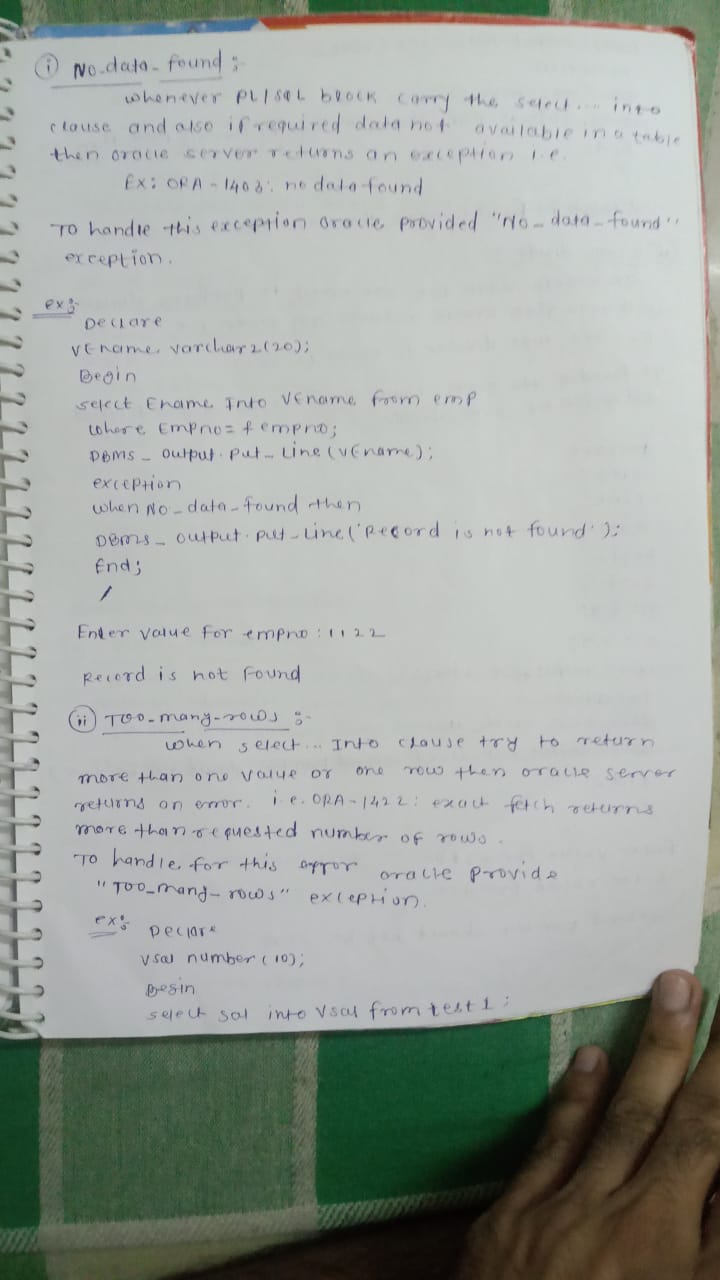 (i) No-data-found :-
whenever PL/SQL block carry the select... into
clause and also if required data not available in a table
then oracle server returns an exception i.e.
Ex: ORA-1403: no data found
To handle this exception oracle provided "No-data-found"
exception.
ex:-
Declare
VEname varchar2(20);
Begin
select Ename Into VEname from emp
where Empno= & empno;
DBMS_output.put_Line(VEname);
exception
when No_data_found then
DBMS_output.put_Line('Record is not found');
End;
/
Enter value for empno: 1122
Record is not found
(ii) Too-many-rows :-
When select... Into clause try to return
more than one value or one row then oracle server
returns an error. i.e. ORA-1422: exact fetch returns
more than requested number of rows.
To handle for this error oracle provide
"Too_many-rows" exception.
ex:-
Declare
vsal number(10);
Begin
select sal into Vsal from test1;